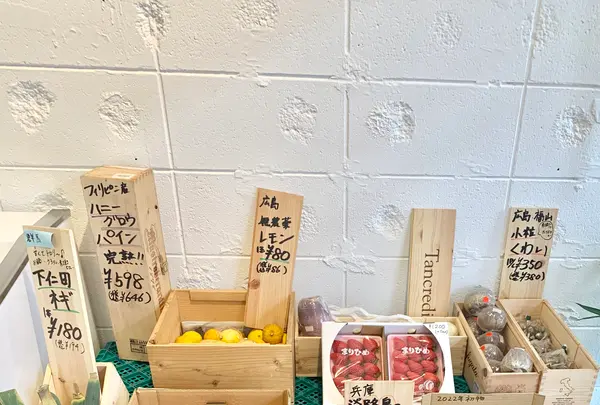 下仁田
ネギ
は
¥180
(込¥194)
フィリピン産
ハニー
グロウ
パイン
完熟!!
¥598
(込¥646)
広島
レモン
は¥80
(込¥86)
Tancredi
広島 福山
小粒
くわい
¥350
まりひめ
まりひめ
¥1200
兵庫
淡路島
2022年初物